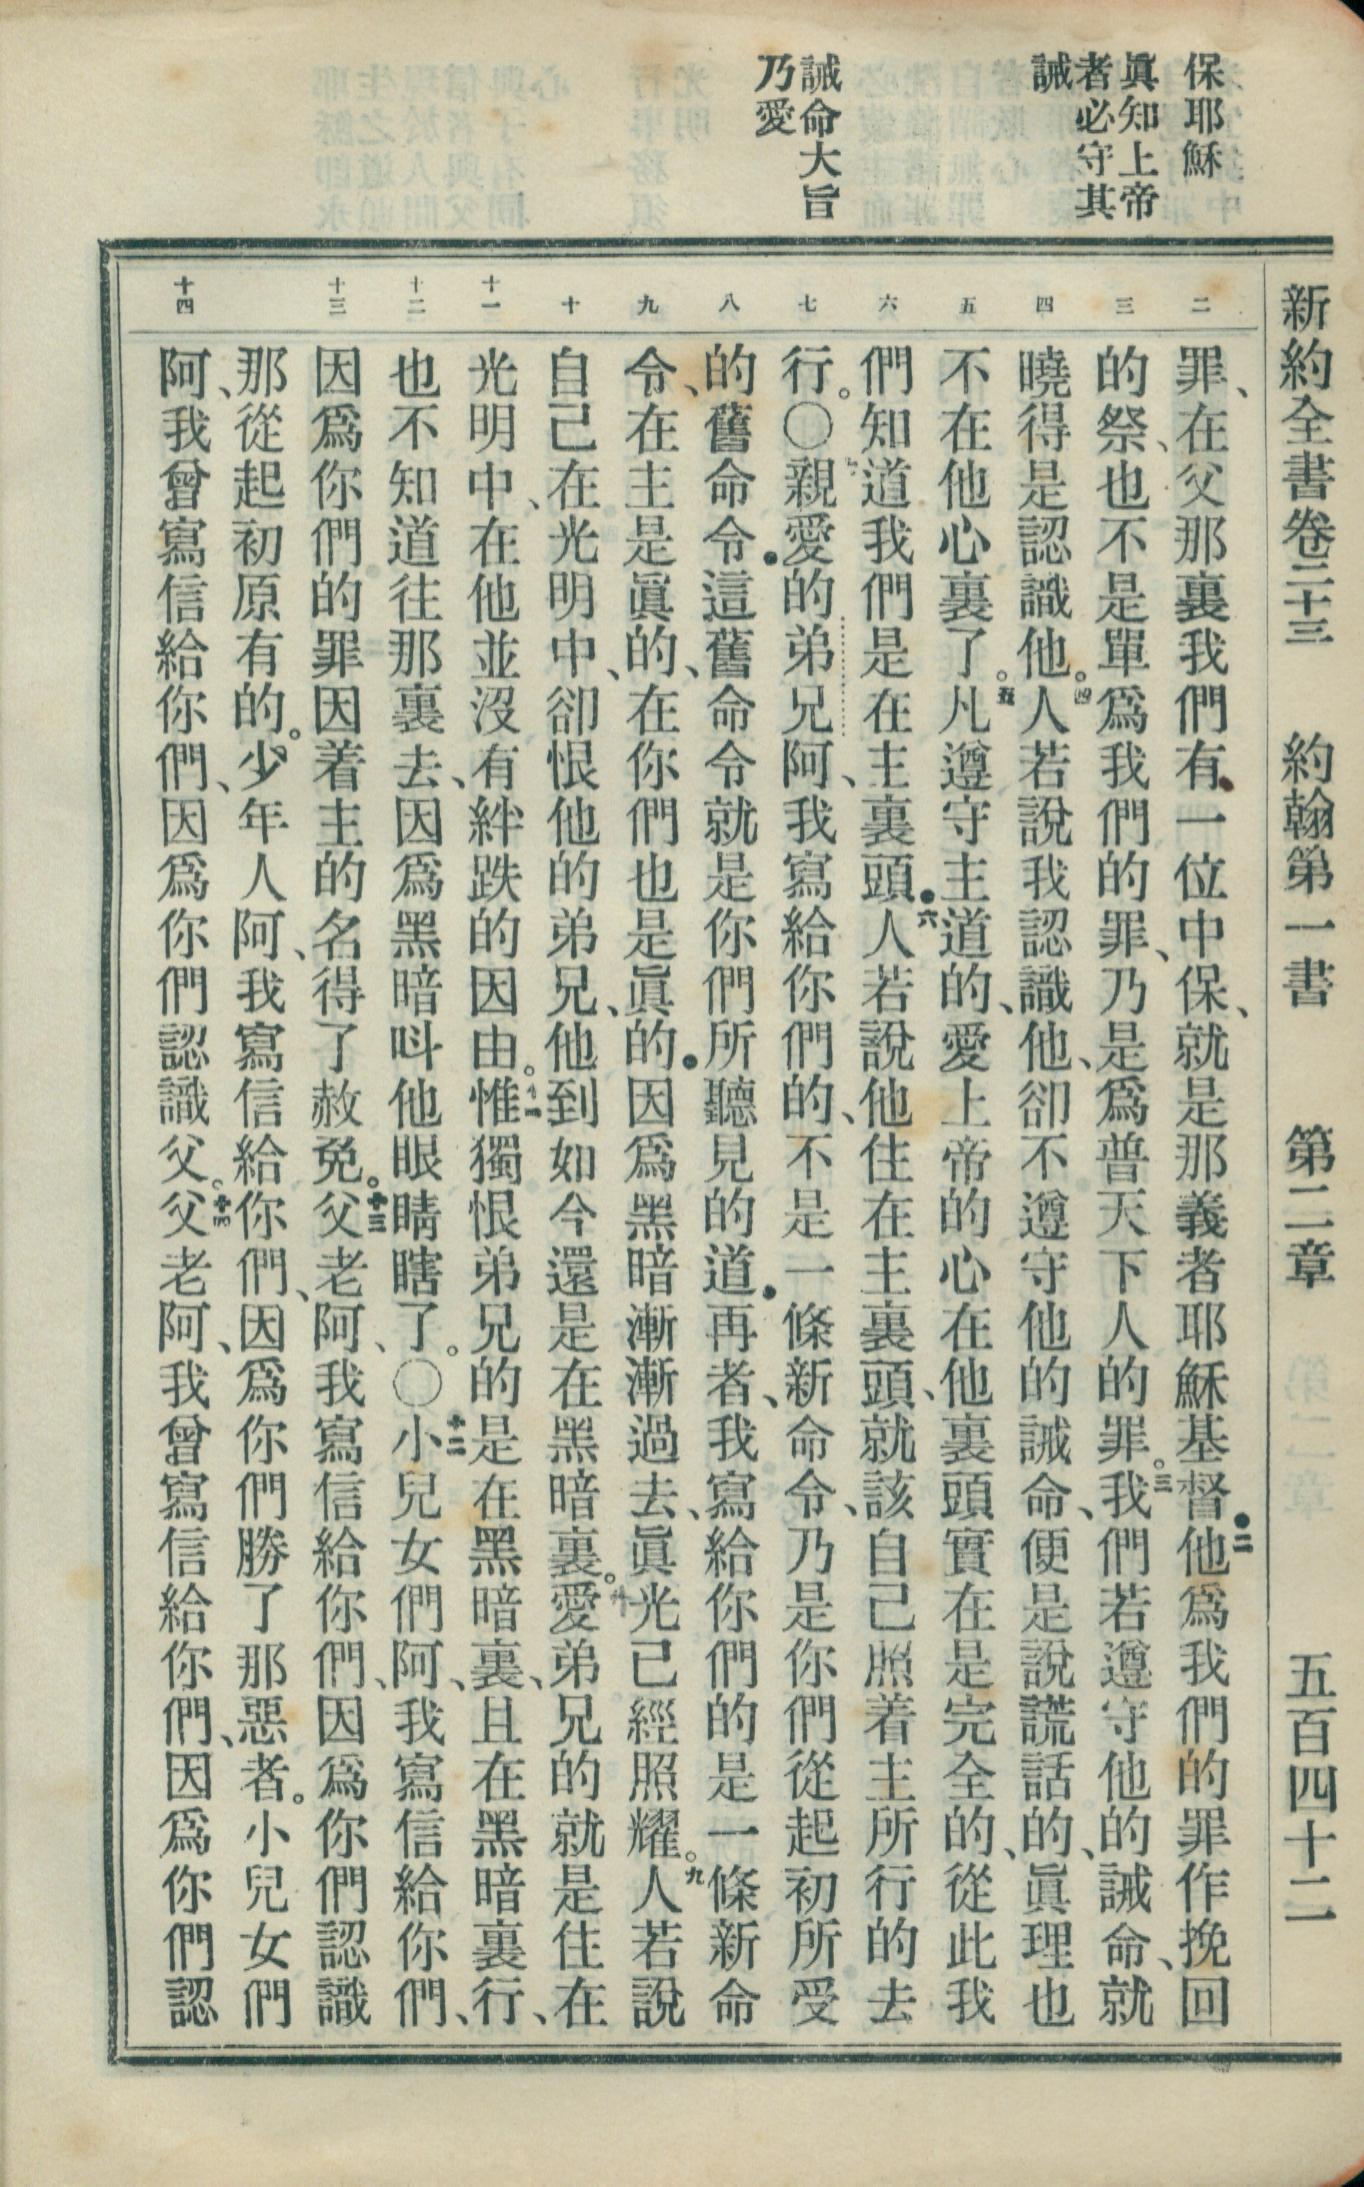 新約全書卷二十三　約翰第一書　第二章　五百四十二
保耶穌
眞知上帝
者必守其
誡
誡命大旨
乃愛
二　三　四　五　六　七　八　九　十　十一　十二　十三　十四
罪、在父那裏我們有一位中保、就是那義者耶穌基督●二他爲我們的罪作挽回
的祭、也不是單爲我們的罪、乃是爲普天下人的罪。三我們若遵守他的誡命、就
曉得是認識他。四人若說我認識他、卻不遵守他的誡命、便是說謊話的、眞理也
不在他心裏了。五凡遵守主道的、愛上帝的心在他裏頭實在是完全的、從此我
們知道我們是在主裏頭●六人若說他住在主裏頭、就該自己照着主所行的去
行。○七親愛的弟兄阿、我寫給你們的、不是一條新命令、乃是你們從起初所受
的舊命令●這舊命令就是你們所聽見的道●再者、我寫給你們的是一條新命
令、在主是眞的、在你們也是眞的●因爲黑暗漸漸過去、眞光已經照耀。九人若說
自己在光明中、卻恨他的弟兄、他到如今還是在黑暗裏。十愛弟兄的就是住在
光明中、在他並沒有絆跌的因由。十一惟獨恨弟兄的是在黑暗裏、且在黑暗裏行、
也不知道往那裏去、因爲黑暗呌他眼睛瞎了。○十二小兒女們阿、我寫信給你們、
因爲你們的罪因着主的名得了赦免。十三父老阿、我寫信給你們、因爲你們認識
那從起初原有的。少年人阿、我寫信給你們、因爲你們勝了那惡者。小兒女們
阿、我曾寫信給你們、因爲你們認識父。十四父老阿、我曾寫信給你們、因爲你們認